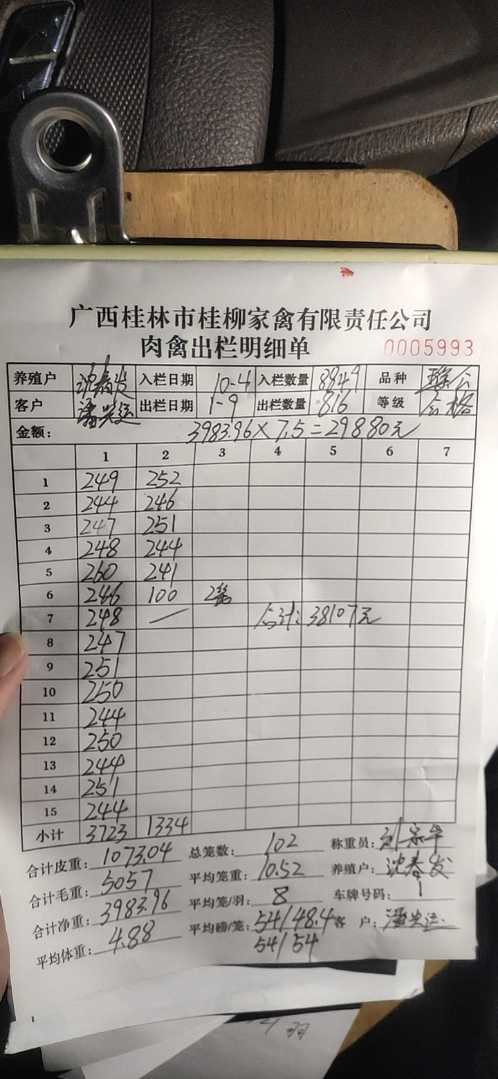 广西桂林市桂柳家禽有限责任公司
肉禽出栏明细单 0005993
养殖户 沈春发 入栏日期 10-4 入栏数量 8949 品种
客户 出栏日期 1-9 出栏数量 816 等级 合格
金额: 3983.96×7.5=29880元
1 2 3 4 5 6 7
1 249 252
2 244 246
3 247 251
4 248 244
5 260 241
6 246 100 2笼
7 248 — 合计:38107元
8 247
9 251
10 250
11 244
12 250
13 244
14 251
15 244
小计 3723 1334
合计皮重: 1073.04 总笼数: 102 称重员:
合计毛重: 5057 平均笼重: 10.52 养殖户: 沈春发
合计净重: 3983.96 平均笼/羽: 8 车牌号码:
平均体重: 4.88 平均磅/笼: 54/48.4 客 户:
54/54